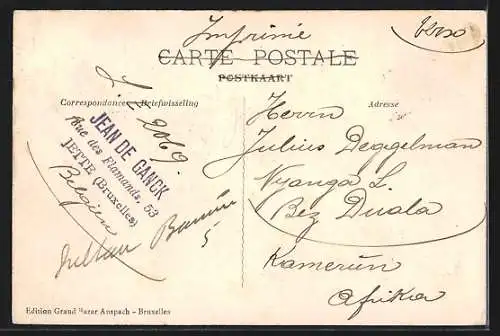 Imprimé
verso
CARTE POSTALE
POSTKAART
Correspondance Briefwisseling
Adresse
JEAN DE GANCK
Rue des Flamands, 53
JETTE (Bruxelles)
Belgien
5
Herrn
Julius Deggelman
Nyanga L.
Bez Duala
Kamerun
Afrika
Edition Grand Bazar Anspach – Bruxelles